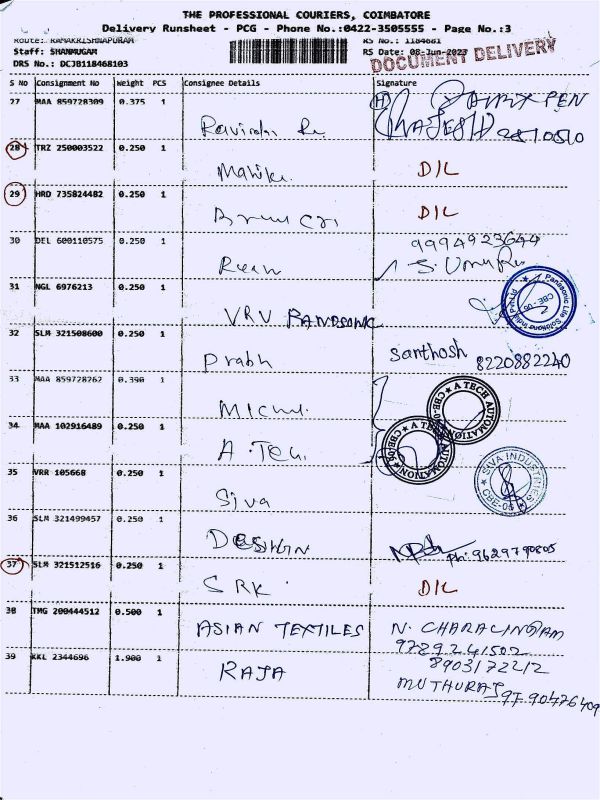 THE PROFESSIONAL COURIERS, COIMBATORE
Delivery Runsheet - PCG - Phone No.:0422-3505555 - Page No.:3
Route: RAMAKRISHNAPURAM RS No.: 1184681
Staff: SHANMUGAM RS Date: 08-Jun-2023
DRS No.: DCJB118468103 DOCUMENT DELIVERY
S No Consignment No Weight PCS Consignee Details Signature
27 MAA 859728309 0.375 1
RAJESH
28 TRZ 250003522 0.250 1
D/L
29 HRD 735824482 0.250 1
D/L
30 DEL 600110575 0.250 1 9994923644
31 NGL 6976213 0.250 1
VRV PANASONIC
Panasonic Life Solutions India Pvt Ltd
32 SLM 321508600 0.250 1
Prabh Santhosh 8220882240
33 MAA 859728262 0.390 1
A TECH AUTOMATION
34 MAA 102916489 0.250 1
A. Tech
35 VRR 105668 0.250 1
Siva SIVA INDUSTRIES
36 SLM 321499457 0.250 1
Ph: 9629790805
37 SLM 321512516 0.250 1
SRK D/L
38 TMG 200444512 0.500 1
ASIAN TEXTILES N. CHARALINGAM
9789241502
39 KKL 2344696 1.900 1 8903172212
RAJA MUTHURAJ 9790476409